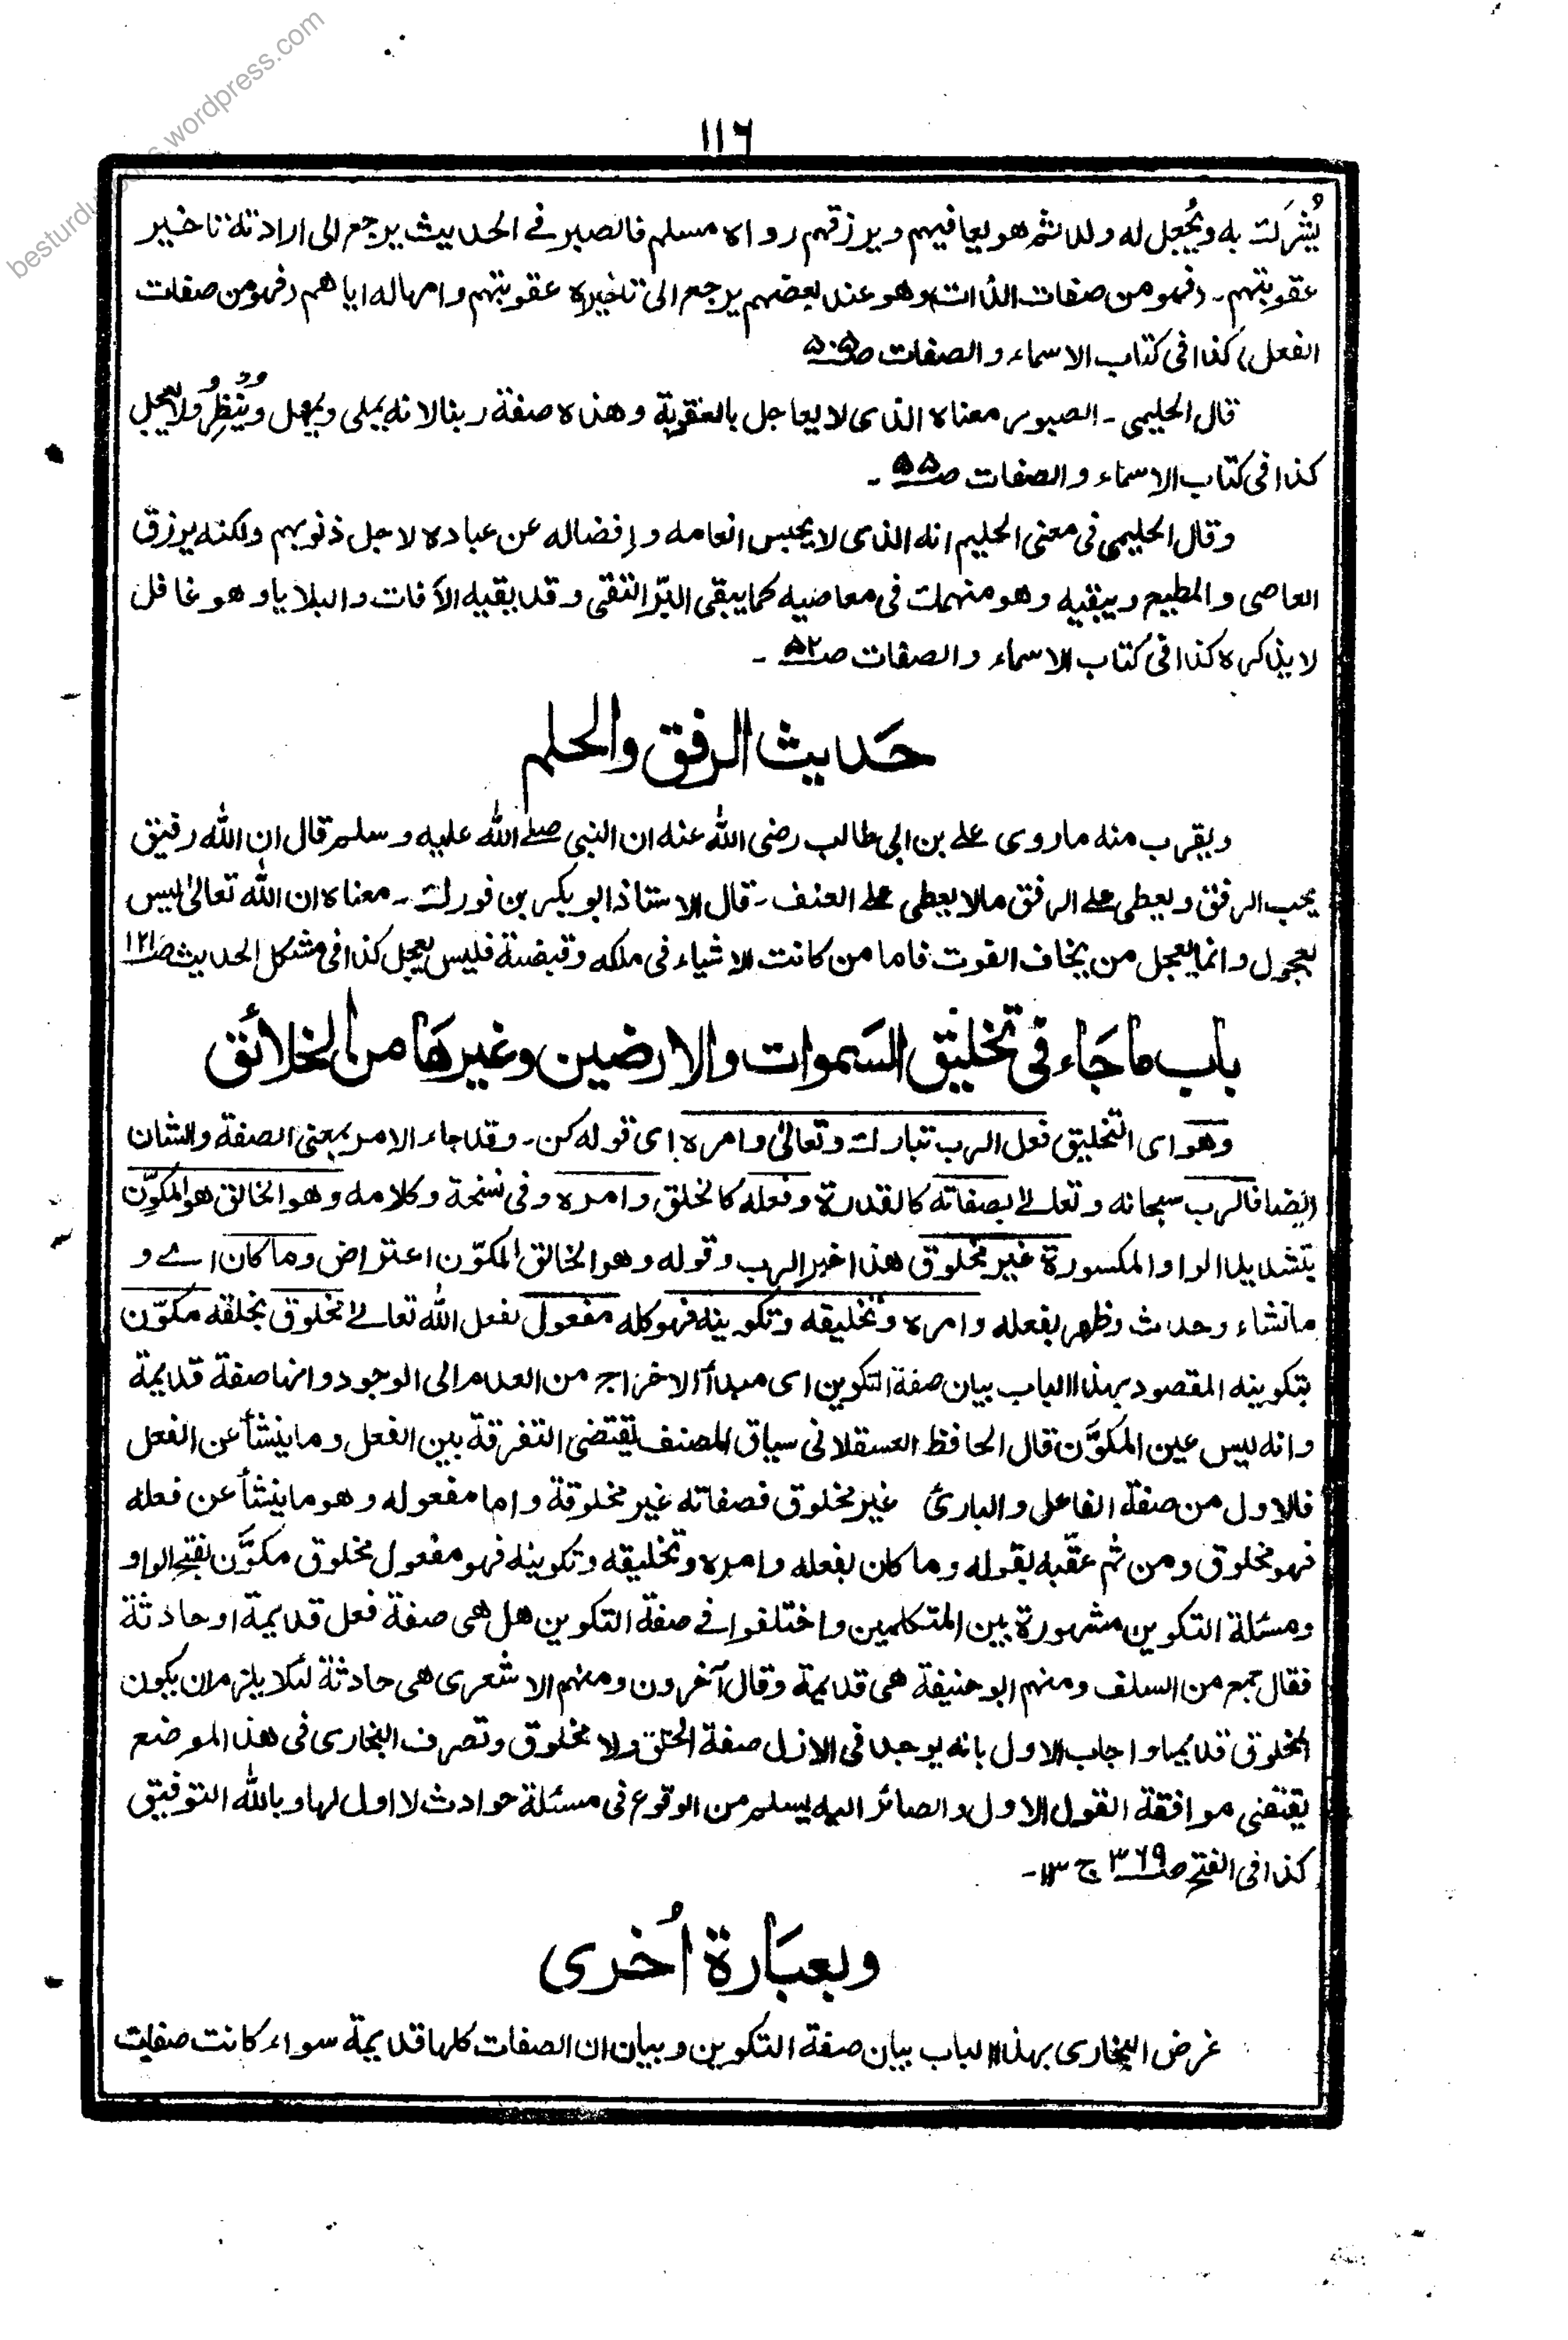 besturdubooks.wordpress.com
۱۱۶
يُشرَك به ويُجعل له ولد ثم هو يعافيهم ويرزقهم رواه مسلم فالصبر في الحديث يرجع الى ارادته تاخير
عقوبتهم۔ (فهو من صفات الذات) وهو عند بعضهم يرجع الى تاخيره عقوبتهم وامهاله اياهم (فهو من صفات
الفعل) كذا في كتاب الاسماء والصفات ص۵۰۵
قال الحليمي۔ الصبور معناه الذى لا يعاجل بالعقوبة وهذه صفة ربنا لانه يملى ويمهل ويُنظِرُ ولا يعجل
كذا في كتاب الاسماء والصفات ص۵۵۔
وقال الحليمي في معنى الحليم انه الذى لا يحبس انعامه وإفضاله عن عباده لاجل ذنوبهم ولكنه يرزق
العاصى والمطيع ويبقيه وهو منهمك في معاصيه كما يبقى البرّ التقى وقد يقيه الآفات والبلايا وهو غافل
لا يذكره كذا في كتاب الاسماء والصفات ص۵۲۔
حَديث الرفق والحلم
ويقرب منه ما روى علے بن ابى طالب رضى الله عنه ان النبى صلے الله عليه وسلم قال ان الله رفيق
يحب الرفق ويعطى علے الرفق مالا يعطى علے العنف۔ قال الاستاذ ابو بكر بن فورك۔ معناه ان الله تعالىٰ ليس
بعجول وانما يعجل من يخاف الفوت فاما من كانت الاشياء في ملكه وقبضته فليس يعجل كذا في مشكل الحديث ص۱۲۱
باب ما جَاء في تخليق السَموات والارضين وغيرهَا من الخلائق
وهو اى التخليق فعل الرب تبارك وتعالىٰ وامره اى قوله كن۔ وقد جاء الامر بمعنى الصفة والشان
ايضا فالرب سبحانه وتعالے بصفاته كالقدرة وفعله كالخلق وامره وفى نسخة وكلامه وهو الخالق هو المكوِّن
بتشديد الواو المكسورة غير مخلوق هذا خبر الرب وقوله وهو الخالق المكوّن اعتراض وما كان اے و
ما نشاء وحدث وظهر بفعله وامره وتخليقه وتكوينه فهو كله مفعول بفعل الله تعالے مخلوق بخلقه مكوّن
بتكوينه المقصود بهذا الباب بيان صفة التكوين اى مبدأ الاخراج من العدم الى الوجود وانها صفة قديمة
وانه ليس عين المكوَّن قال الحافظ العسقلانى سياق المصنف يقتضى التفرقة بين الفعل وما ينشأ عن الفعل
فالاول من صفة الفاعل والبارئ غير مخلوق فصفاته غير مخلوقة واما مفعوله وهو ما ينشأ عن فعله
فهو مخلوق ومن ثم عقّبه بقوله وما كان بفعله وامره وتخليقه وتكوينه فهو مفعول مخلوق مكوَّن بفتح الواو
ومسئلة التكوين مشهورة بين المتكلمين واختلفوا في صفة التكوين هل هى صفة فعل قديمة او حادثة
فقال جمع من السلف ومنهم ابو حنيفة هى قديمة وقال آخرون ومنهم الاشعرى هى حادثة لئلا يلزم ان يكون
المخلوق قديما واجاب الاول بانه يوجد فى الازل صفة الخلق ولا مخلوق وتصرف البخارى فى هذا الموضع
يقتضى موافقة القول الاول والصائر اليه يسلم من الوقوع فى مسئلة حوادث لا اول لها وبالله التوفيق
كذا فى الفتح ص۳۶۹ ج ۱۳۔
وبعبَارة اُخرى
غرض البخارى بهذا الباب بيان صفة التكوين وبيان ان الصفات كلها قديمة سواء كانت صفات